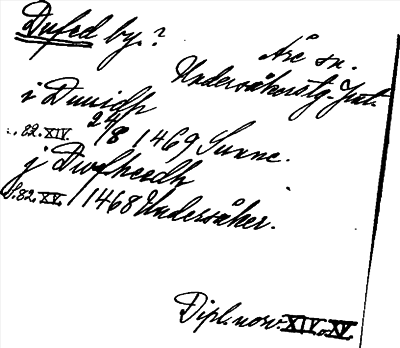 Dufed by.?
Åre sn.
Undersåkers tg. Jmt.
i Duuidh
s. 82. XIV. 24/8 1469 Sunne.
j Dwfheedh
S. 82. XV. 1468 Undersåker.
Dipl. norv. XIV. o. XV.